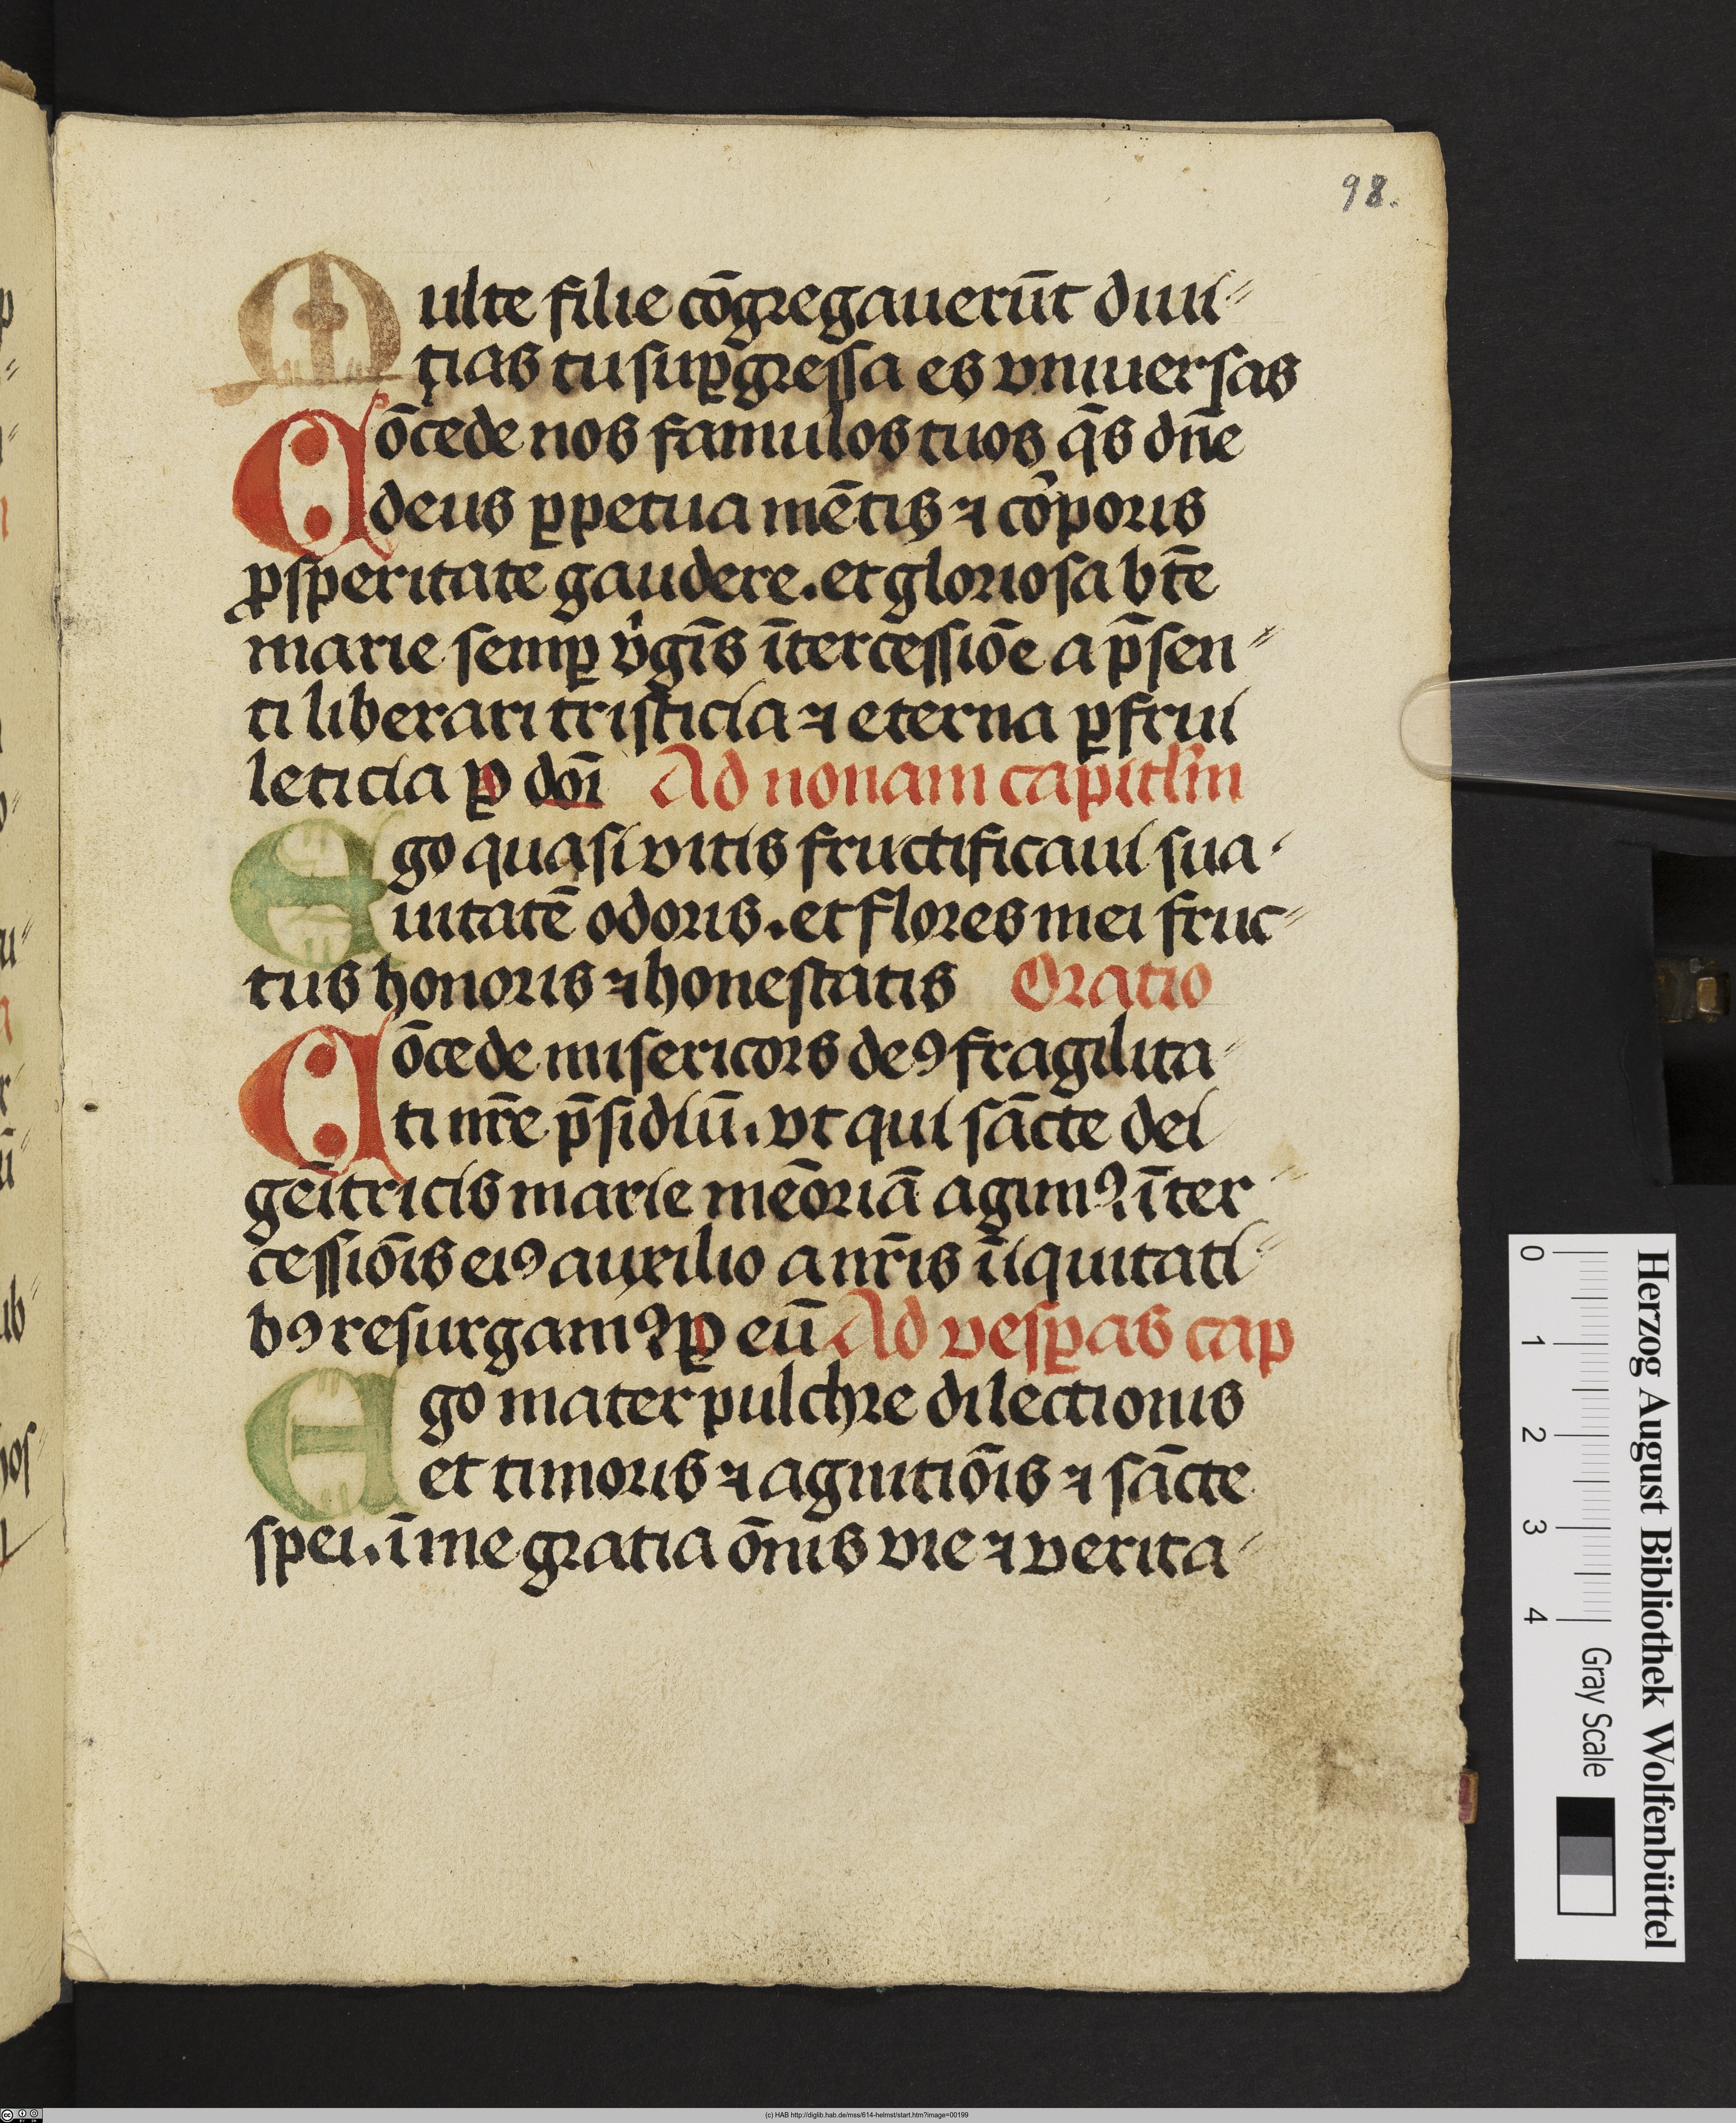 98.
Multe filie cōgregauerūt diui⸗
tias tu suꝑgressa es vniuersas
Cōcede nos famulos tuos q̄s dn̄e
deus ꝑpetua mētis ⁊ corꝑoris
ꝓsperitate gaudere. et gloriosa bt̄e
marie semꝑ v̇gīs ītercessiōe a p̄sen⸗
ti liberari tristicia ⁊ eterna ꝑfrui
leticia ꝑ doī Ad nonam capitl̄m
Ego quasi vitis fructificaui sua⸗
uitatē odoris. et flores mei fruc⸗
tus honoris ⁊ honestatis Oratio
Cōcede misericors deꝰ fragilita⸗
ti nr̄e p̄sidiū. vt qui sācte dei
gēitricis marie mēoriā agimꝰ. īter⸗
cessiōis eiꝰ auxilio a nr̄is īiquitati⸗
bꝰ resurgamꝰ. ꝑ eū Ad vesꝑas cap
Ego mater pulchre dilectionis
et timoris ⁊ agnitiōis ⁊ sācte
spei. ī me gratia ōnis vie ⁊ verita⸗
Herzog August Bibliothek Wolfenbüttel
0 1 2 3 4 Gray Scale
(c) HAB http://diglib.hab.de/mss/614-helmst/start.htm?image=00199